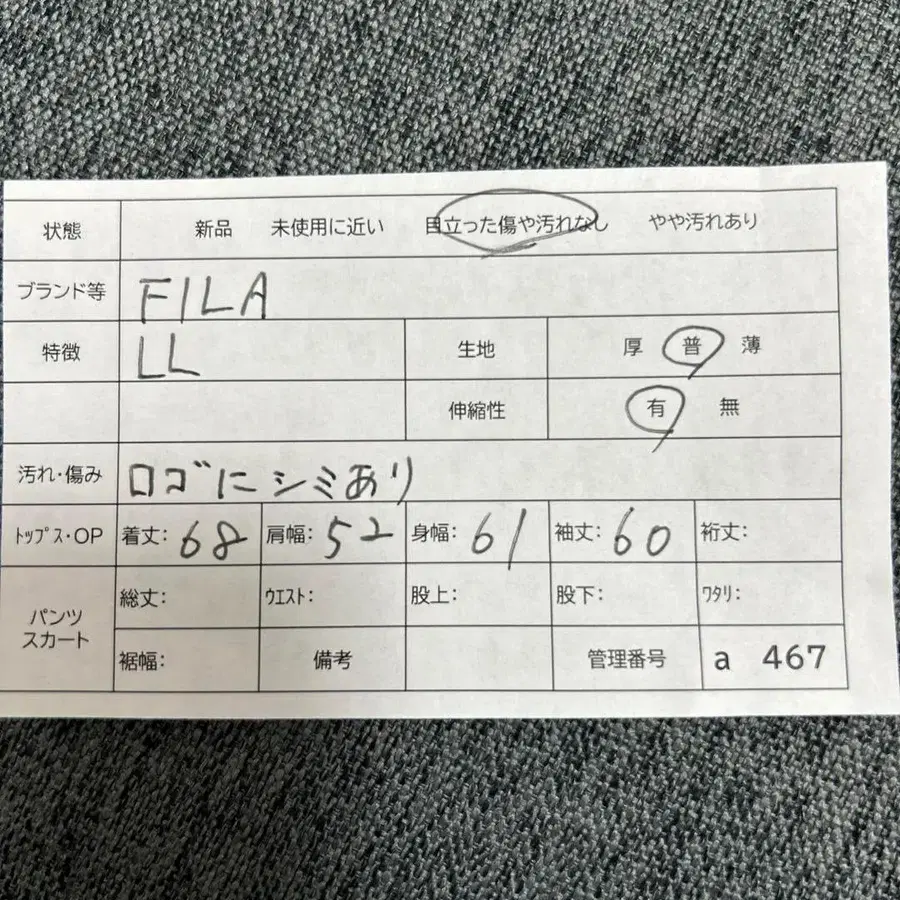 状態 新品 未使用に近い 目立った傷や汚れなし やや汚れあり
ブランド等 FILA
特徴 LL 生地 厚 普 薄
伸縮性 有 無
汚れ・傷み ロゴにシミあり
ﾄｯﾌﾟｽ・OP 着丈: 68 肩幅: 52 身幅: 61 袖丈: 60 裄丈:
パンツ
スカート
総丈: ｳｴｽﾄ: 股上: 股下: ﾜﾀﾘ:
裾幅: 備考 管理番号 a 467